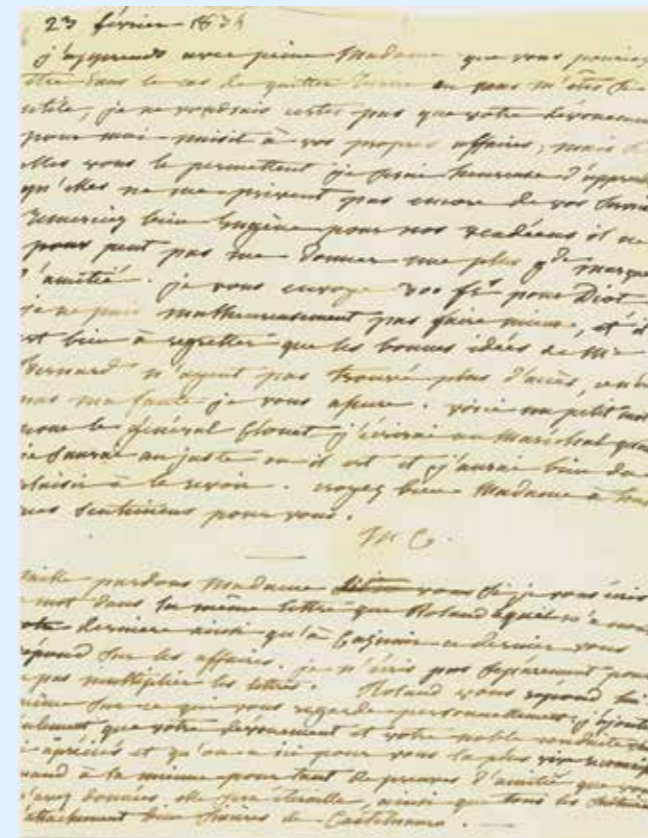 23 février 1834
j'apprends avec peine Madame que vous pourriez
être dans le cas de quitter Turin ou vous m'êtes si
utile, je ne voudrais certes pas que votre dévouement
pour moi nuisit à vos propres affaires, mais si
elles vous le permettent je serai heureuse d'apprendre
qu'elles ne me privent pas encore de vos
Remerciez bien Eugène pour nos vendéens il ne
pour peut pas me donner une plus gde marque
d'amitié. je vous envoye fr pour Diot
je ne puis malheureusement pas faire mieux, et il
est bien à regretter que les bonnes idées de Mr
Bernard n'ayent pas trouvé plus d'accès, ce n'est
pas ma faute je vous assure. voici un petit mot
pour le général Clouet j'écrirai au Maréchal quand
je saurai au juste ou il est et j'aurai bien du
plaisir à le revoir. croyez bien Madame à tous
mes sentimens pour vous.
M C.
mille pardons Madame vous si je vous écris
un mot dans la même lettre que Roland
votre derniere ainsi qu'à Casimir ce dernier vous
répond sur les affaires. je n'écris pas séparément pour
ne pas multiplier les lettres. Roland vous répond lui
même sur ce qui vous regarde personnellement; j'ajoute
seulement que votre dévouement et votre noble conduite
appréciés et qu'on a ici pour vous la plus vive
quand à la mienne pour tant de preuves d'amitié que vous
m'avez données, elle sera éternelle, ainsi que tous les
d'attachement bien sincères de